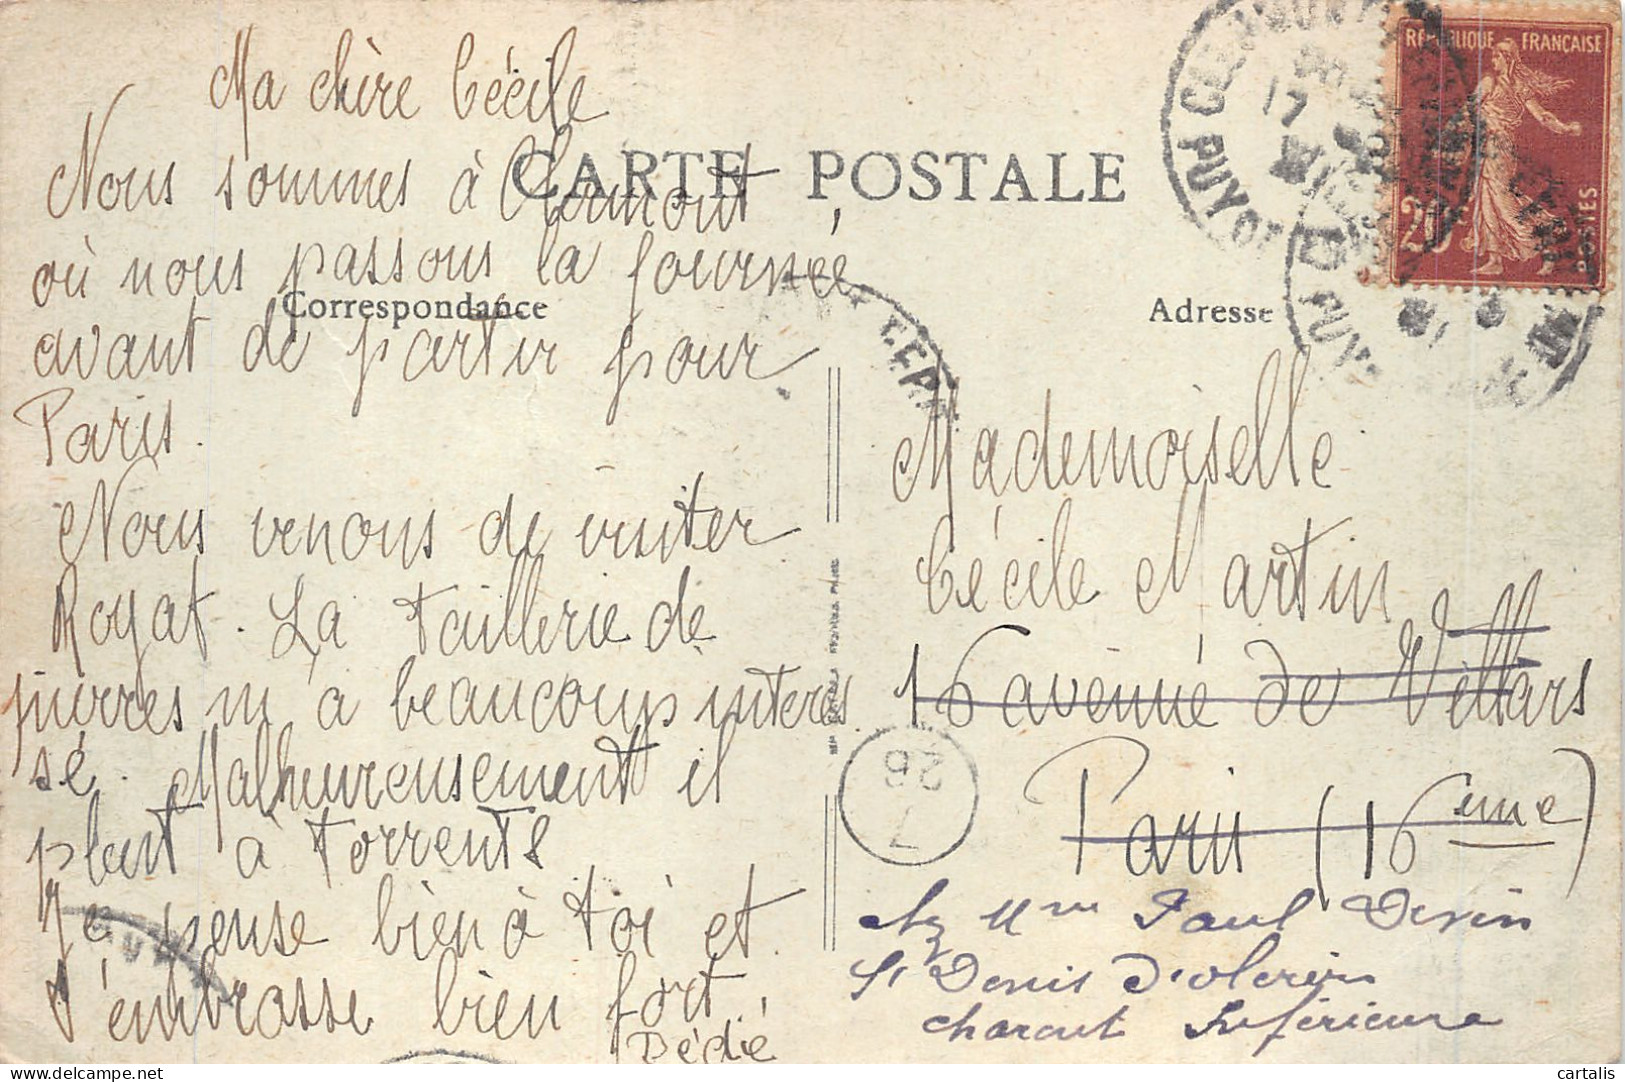 Ma chère Cécile
Nous sommes à Clermont
où nous passons la journée
avant de partir pour
Paris.
Nous venons de visiter
Royat. La taillerie de
pierres m'a beaucoup interes
sé. Malheureusement il
pleut à torrents
Je pense bien à toi et
t'embrasse bien fort.
Dédé
CARTE POSTALE
Correspondance
Adresse
RÉPUBLIQUE FRANÇAISE
20c
POSTES
PUY DE
17
7
26
Mademoiselle
Cécile Martin
16 avenue de Villars
Paris (16eme)
chez Mme Paul
St Denis d'oleron
charent Inférieure
cartalis